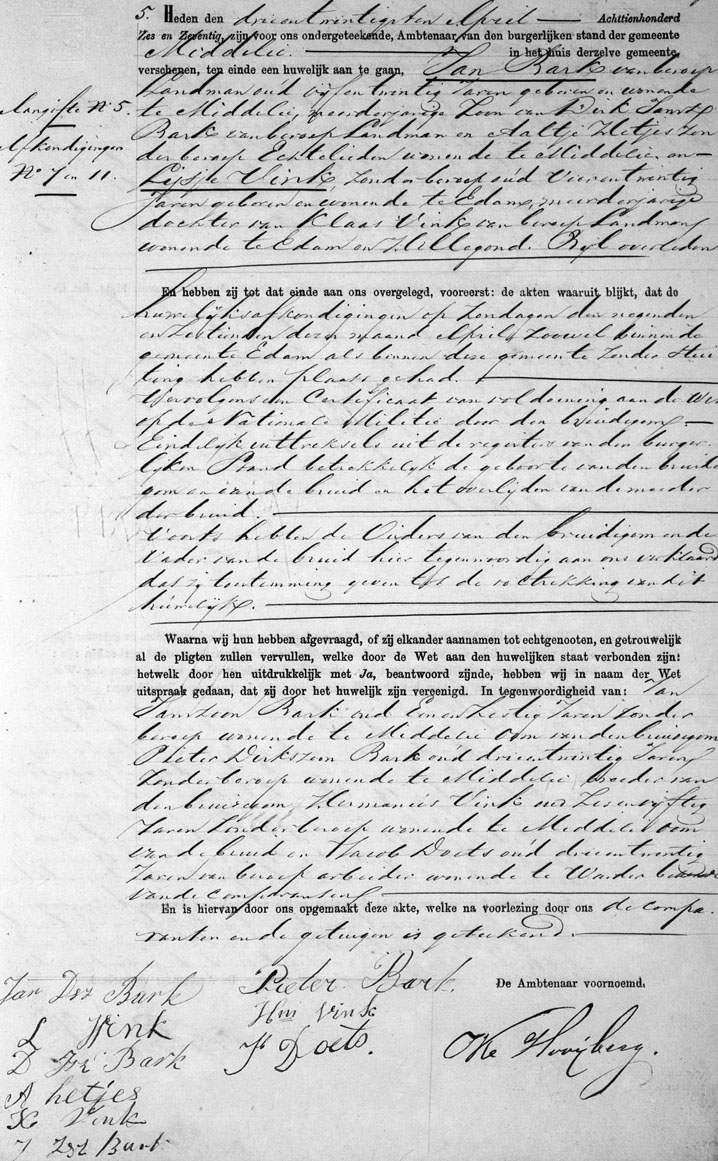 5. Heden den drieentwintigsten April — Achttienhonderd
Zes en Zeventig, zijn voor ons ondergeteekende, Ambtenaar van den burgerlijken stand der gemeente
Middelie. — in het huis derzelve gemeente,
verschenen, ten einde een huwelijk aan te gaan, Jan Bark van beroep
Landman oud vijfentwintig Jaren geboren en wonende
te Middelie, meerderjarige Zoon van Dirk Jansz
Bark van beroep Landman en Aaltje Hetjes zon
der beroep Echtelieden wonende te Middelie en
Lijsje Vink zonder beroep oud Vierentwintig
Jaren geboren en wonende te Edam, meerderjarige
dochter van Klaas Vink van beroep Landman
wonende te Edam en Hillegond. Bijl overleden
Aangifte No 5.
Afkondigingen
No 7 en 11.
En hebben zij tot dat einde aan ons overgelegd, vooreerst: de akten waaruit blijkt, dat de
huwelijksafkondigingen op Zondagen den negenden
en zestienden dezer maand April, zoowel binnen de
gemeente Edam als binnen deze gemeente zonder stui
ting hebben plaats gehad.
Vervolgens een Certificaat van voldoening aan de Wet
op de Nationale Militie door den bruidegom —
Eindelijk uittreksels uit de registers van den burger
lijken Stand betrekkelijk de geboorte van den bruide
gom en van de bruid en het overlijden van de moeder
der bruid.
Voorts hebben de Ouders van den bruidegom en de
Vader van de bruid hier tegenwoordig aan ons verklaard
dat zij toestemming geven tot de voltrekking van dit
huwelijk.
Waarna wij hun hebben afgevraagd, of zij elkander aannamen tot echtgenooten, en getrouwelijk
al de pligten zullen vervullen, welke door de Wet aan den huwelijken staat verbonden zijn:
hetwelk door hen uitdrukkelijk met Ja, beantwoord zijnde, hebben wij in naam der Wet
uitspraak gedaan, dat zij door het huwelijk zijn vereenigd. In tegenwoordigheid van: Jan
Janszoon Bark oud Eenenzestig Jaren zonder
beroep wonende te Middelie Oom van den bruidegom
Pieter Dirkszoon Bark oud drieentwintig Jaren
zonder beroep wonende te Middelie broeder van
den bruidegom, Hermanus Vink oud Zesenvijftig
Jaren zonder beroep wonende te Middelie oom
van de bruid en Jacob Doets oud drieentwintig
Jaren van beroep arbeider wonende te Warder bekende
van de comparanten
En is hiervan door ons opgemaakt deze akte, welke na voorlezing door ons de compa.
ranten en de getuigen is geteekend.
Jan Dsz Bark
L Vink
D Jsz Bark
A hetjes
K Vink
J Jsz Bark
Pieter Bark.
Hms Vink
Jb Doets.
De Ambtenaar voornoemd,
Hooijberg.